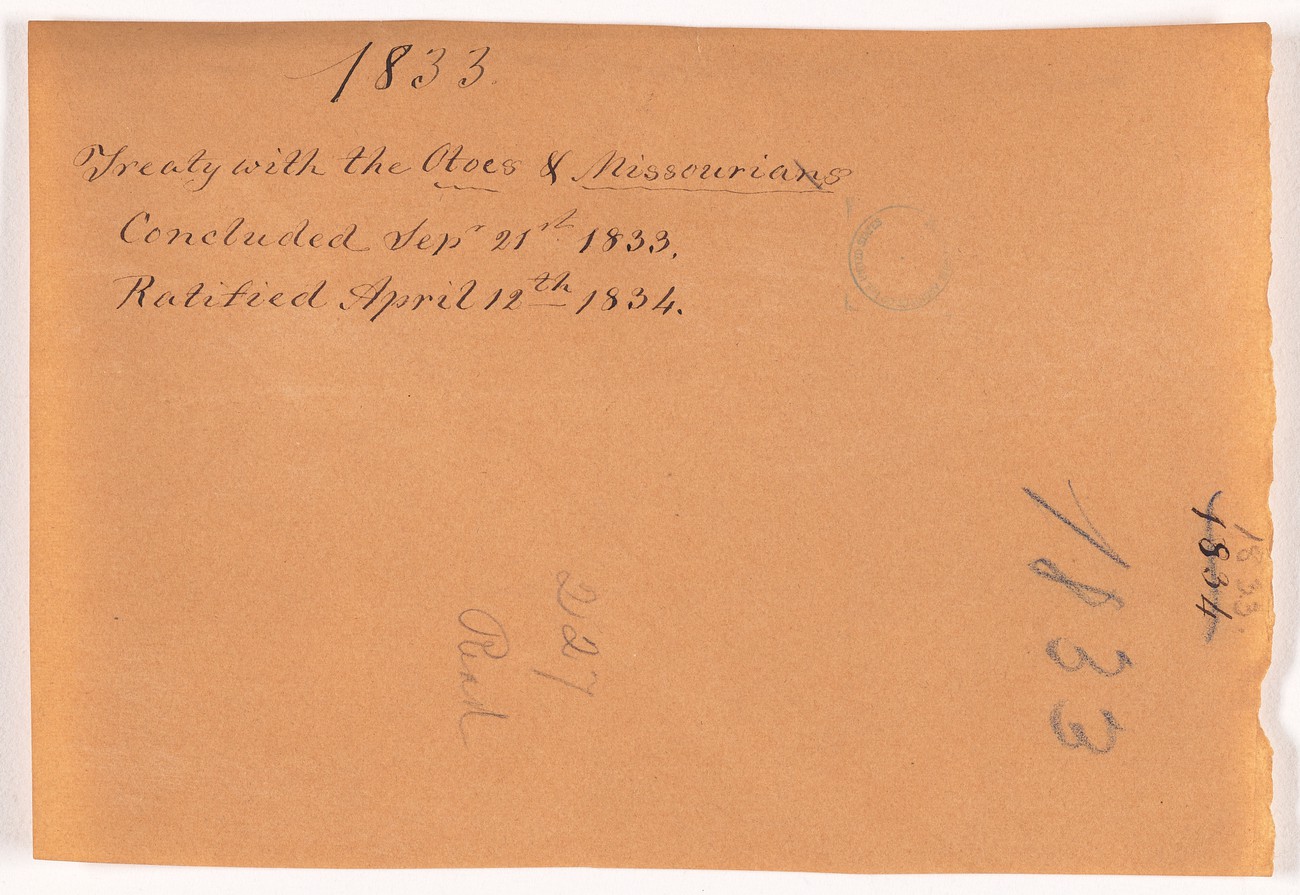 1833
Treaty with the Otoes & Missourians
Concluded Sepr 21st 1833.
Ratified April 12th 1834.
1833
1834
1833
227
Read